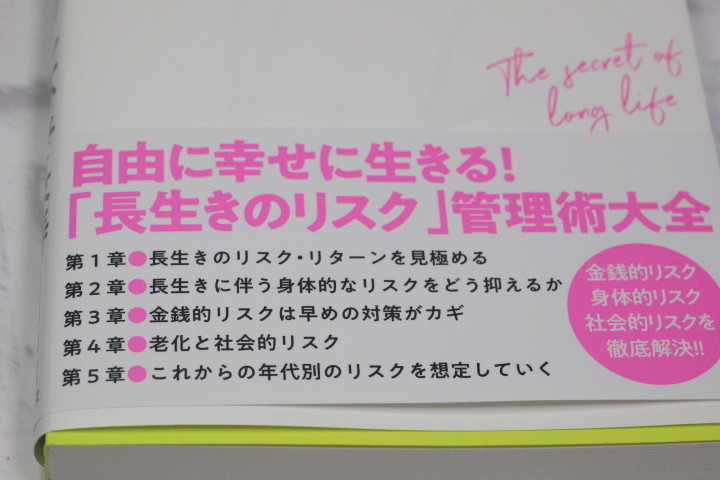 The secret of
long life
自由に幸せに生きる!
「長生きのリスク」管理術大全
第1章●長生きのリスク・リターンを見極める
第2章●長生きに伴う身体的なリスクをどう抑えるか
第3章●金銭的リスクは早めの対策がカギ
第4章●老化と社会的リスク
第5章●これからの年代別のリスクを想定していく
金銭的リスク
身体的リスク
社会的リスクを
徹底解決!!